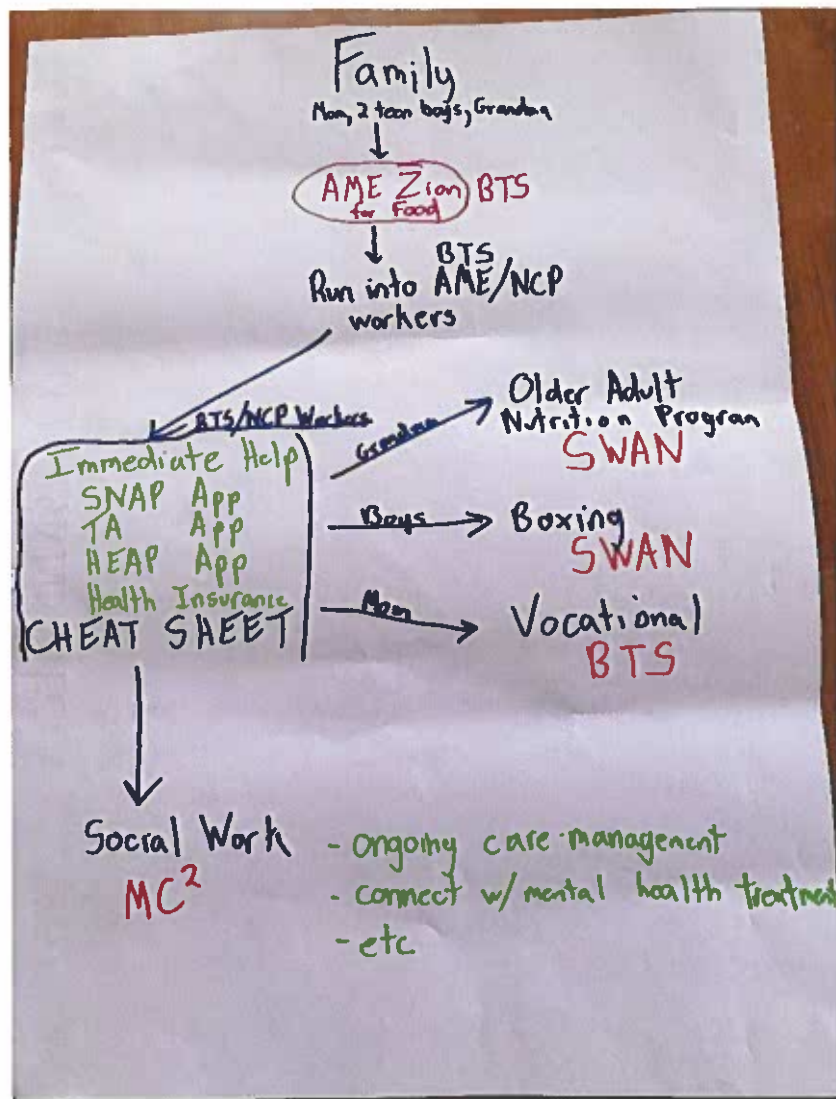 Family
Mom, 2 teen boys, Grandma
AME Zion BTS
for Food
BTS
Run into AME/NCP
workers
BTS/NCP Workers
Immediate Help
SNAP App
TA App
HEAP App
Health Insurance
CHEAT SHEET
Grandma
Older Adult
Nutrition Program
SWAN
Boys
Boxing
SWAN
Mom
Vocational
BTS
Social Work
MC²
- ongoing care management
- connect w/ mental health treatment
- etc